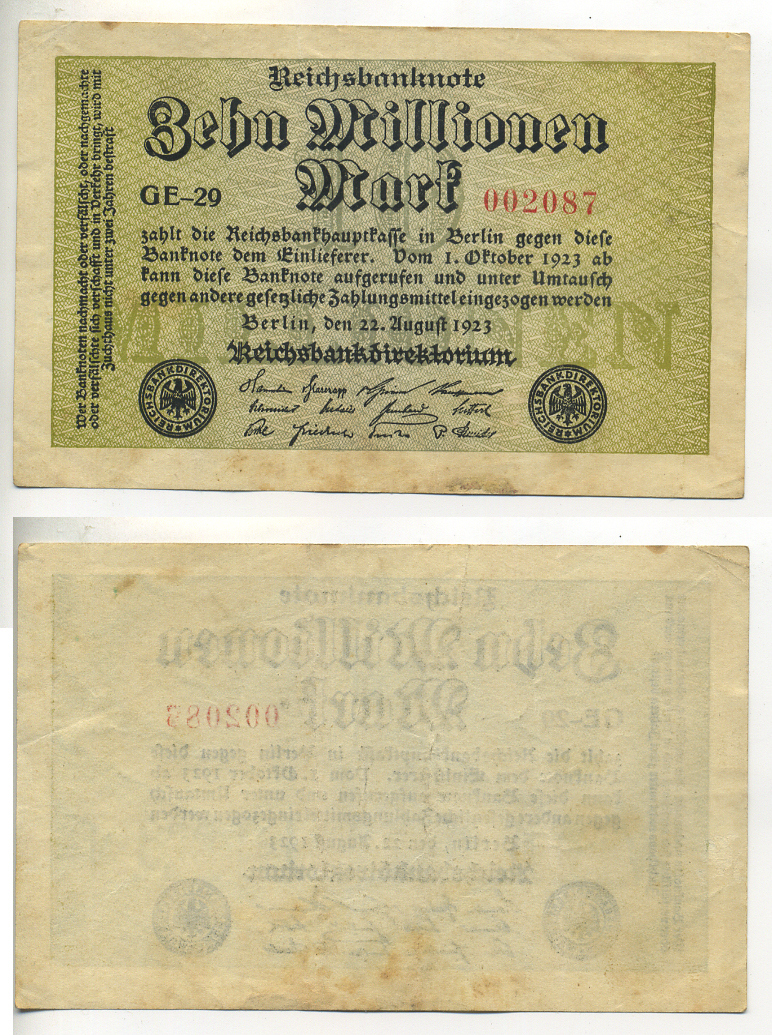 Reichsbanknote
Zehn Millionen
Mark
GE–29 002087
zahlt die Reichsbankhauptkasse in Berlin gegen diese
Banknote dem Einlieferer. Vom 1. Oktober 1923 ab
kann diese Banknote aufgerufen und unter Umtausch
gegen andere gesetzliche Zahlungsmittel eingezogen werden
Berlin, den 22. August 1923
Reichsbankdirektorium
REICHSBANKDIREKTORIUM
REICHSBANKDIREKTORIUM
Wer Banknoten nachmacht oder verfälscht, oder nachgemachte
oder verfälschte sich verschafft und in Verkehr bringt, wird mit
Zuchthaus nicht unter zwei Jahren bestraft